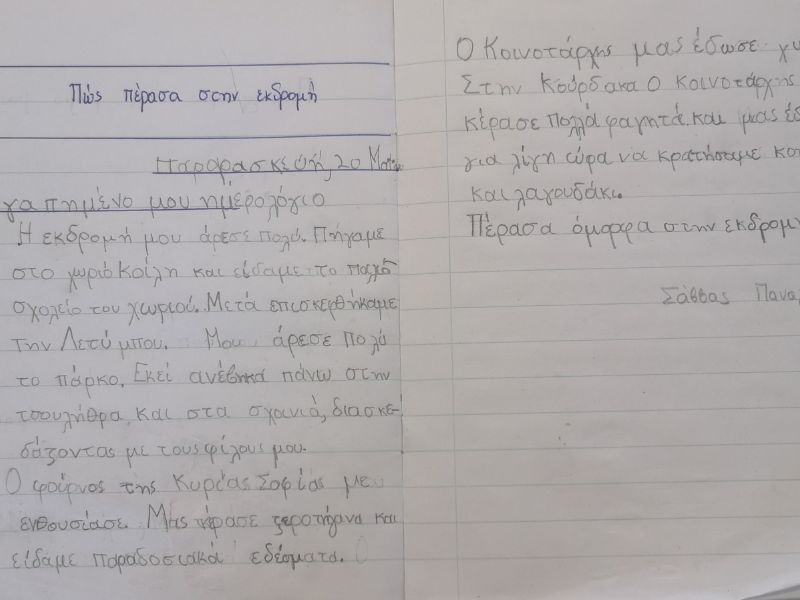 Πώς πέρασα στην εκδρομή
Παραρασκευή, 20
γαπημένο μου ημερολόγιο
Η εκδρομή μου άρεσε πολύ. Πήγαμε
στο χωριό Κοίλη και είδαμε το παλιό
σχολείο του χωριού. Μετά επισκεφθήκαμε
την Λετύμπου. Μου άρεσε πολύ
το πάρκο. Εκεί ανέβηκα πάνω στην
τσουλήθρα και στα σχοινιά, διασκε-
δάζοντας με τους φίλους μου.
Ο φούρνος της Κυρίας Σοφίας με
ενθουσίασε. Μας κέρασε ξεροτήγανα και
είδαμε παραδοσιακά εδέσματα.
Ο Κοινοτάρχης μας έδωσε
Στην Κούρδακα ο κοινοτάρχης
κέρασε πολλά φαγητά και μας
για λίγη ώρα να κρατήσουμε
και λαγουδάκι.
Πέρασα όμορφα στην εκδρομή
Σάββας